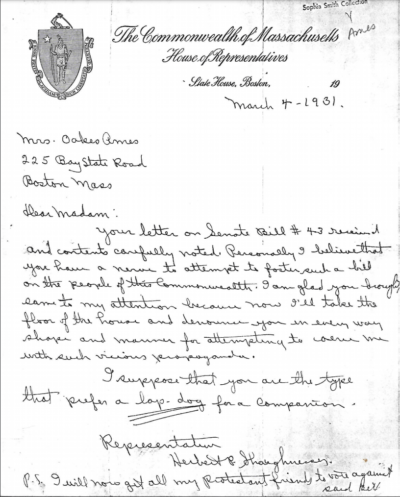 Sophia Smith Collection
Ames
The Commonwealth of Massachusetts
House of Representatives
State House, Boston, 19
March 4-1931.
Mrs. Oakes Ames
225 Bay State Road
Boston Mass
Dear Madam:
Your letter on Senate Bill #43 received
and contents carefully noted. Personally I believe that
you have a nerve to attempt to foster such a bill
on the people of this Commonwealth. I am glad you brought
same to my attention because now I'll take the
floor of the house and denounce you in every way
shape and manner for attempting to coerce me
with such vicious propaganda.
I suppose that you are the type
that prefer a lap-dog for a companion.
Representative
Herbert
P.S. I will now get all my Protestant friends to vote against
said Bill